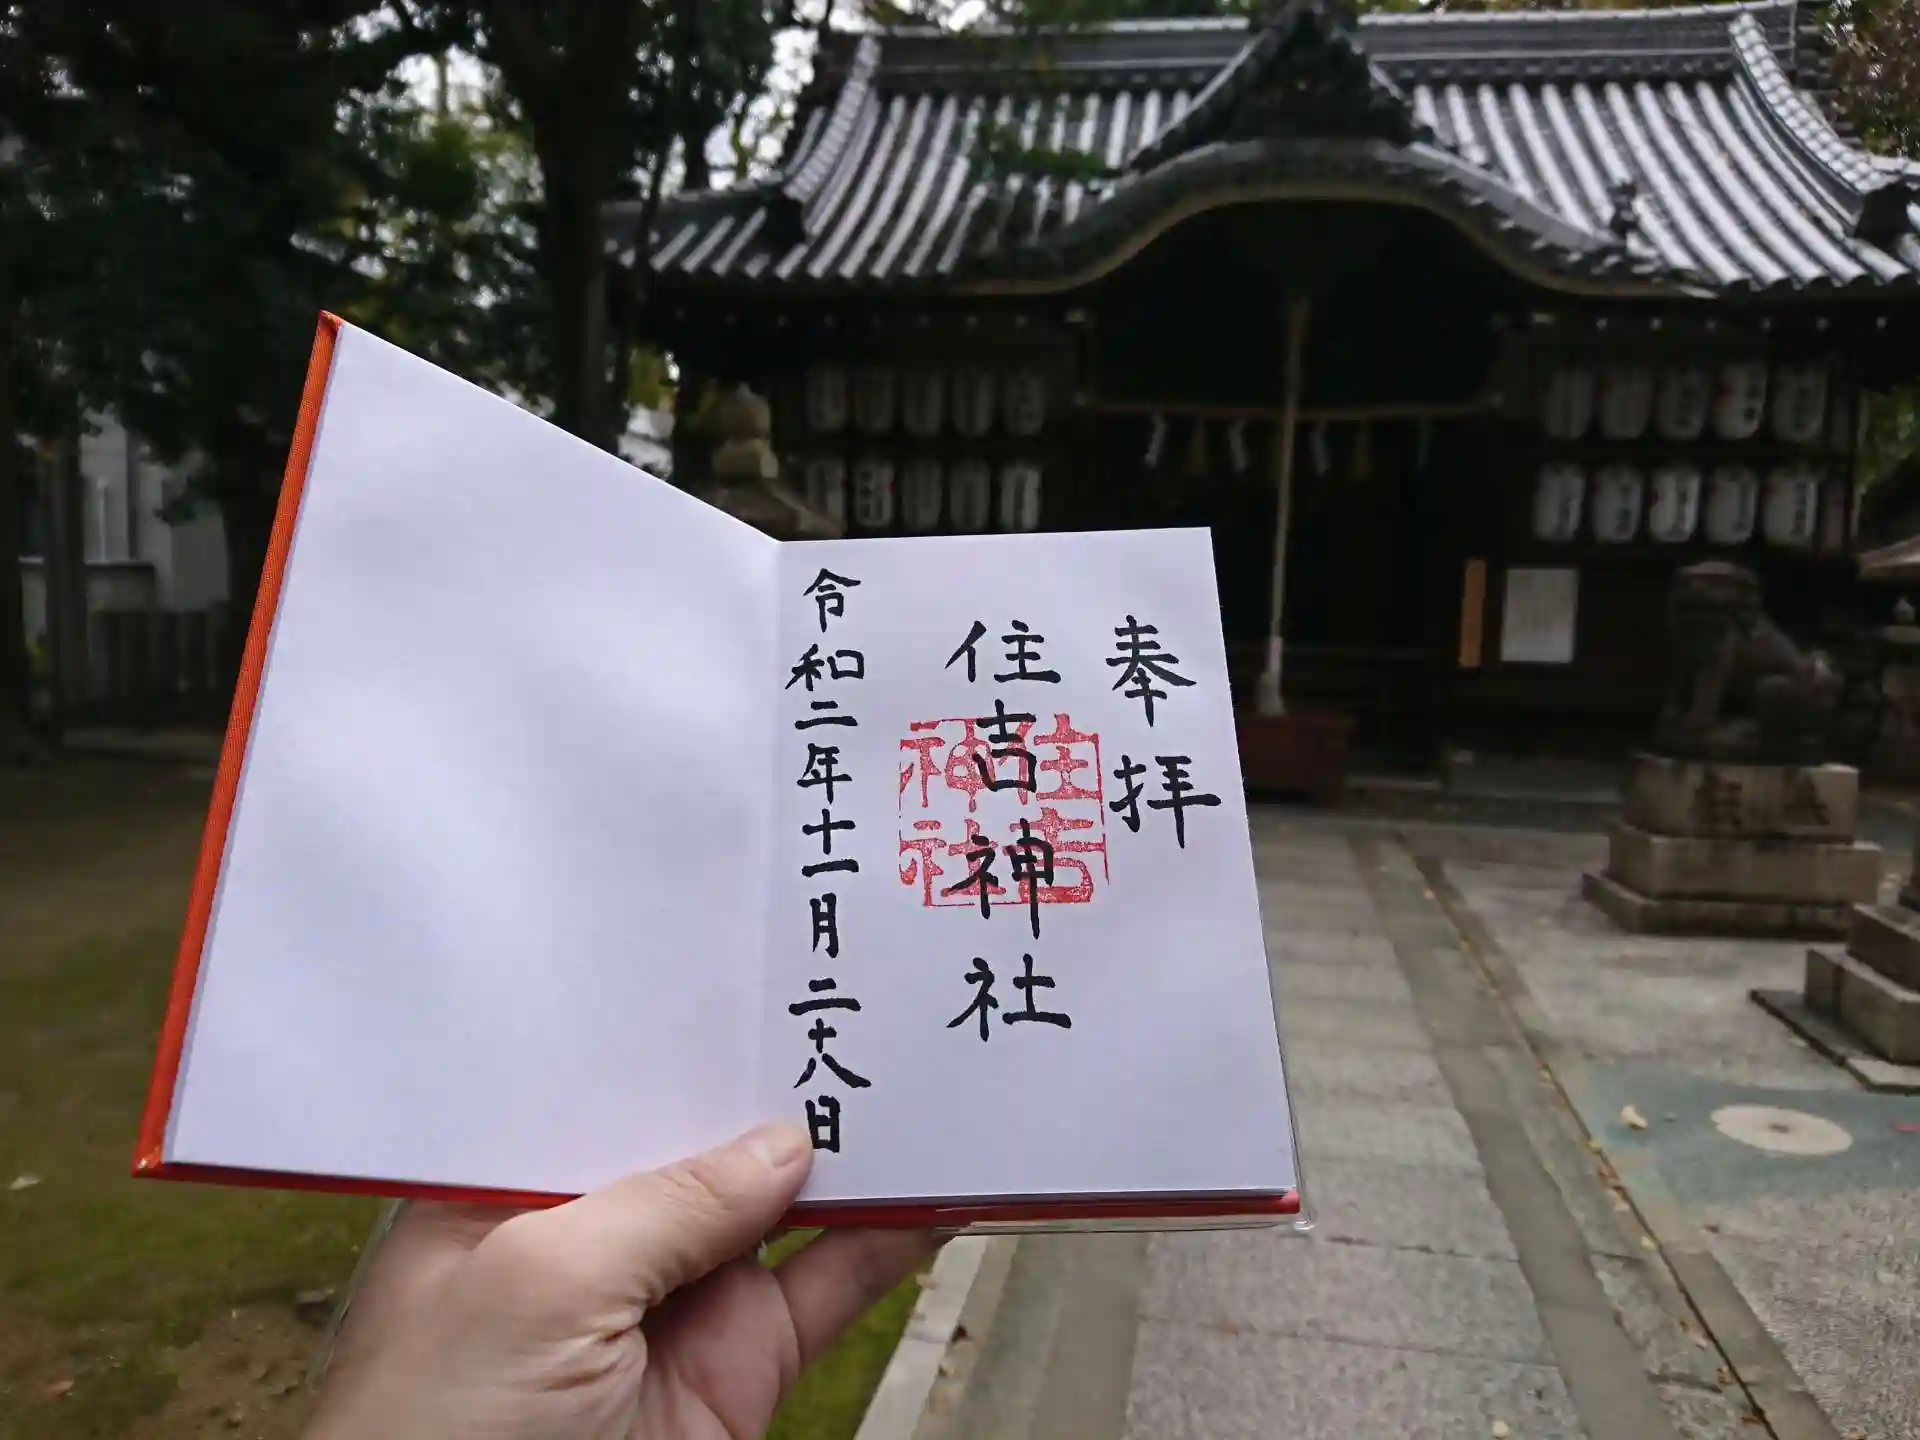 奉拝
住吉神社
住吉
神社
令和二年十一月二十八日